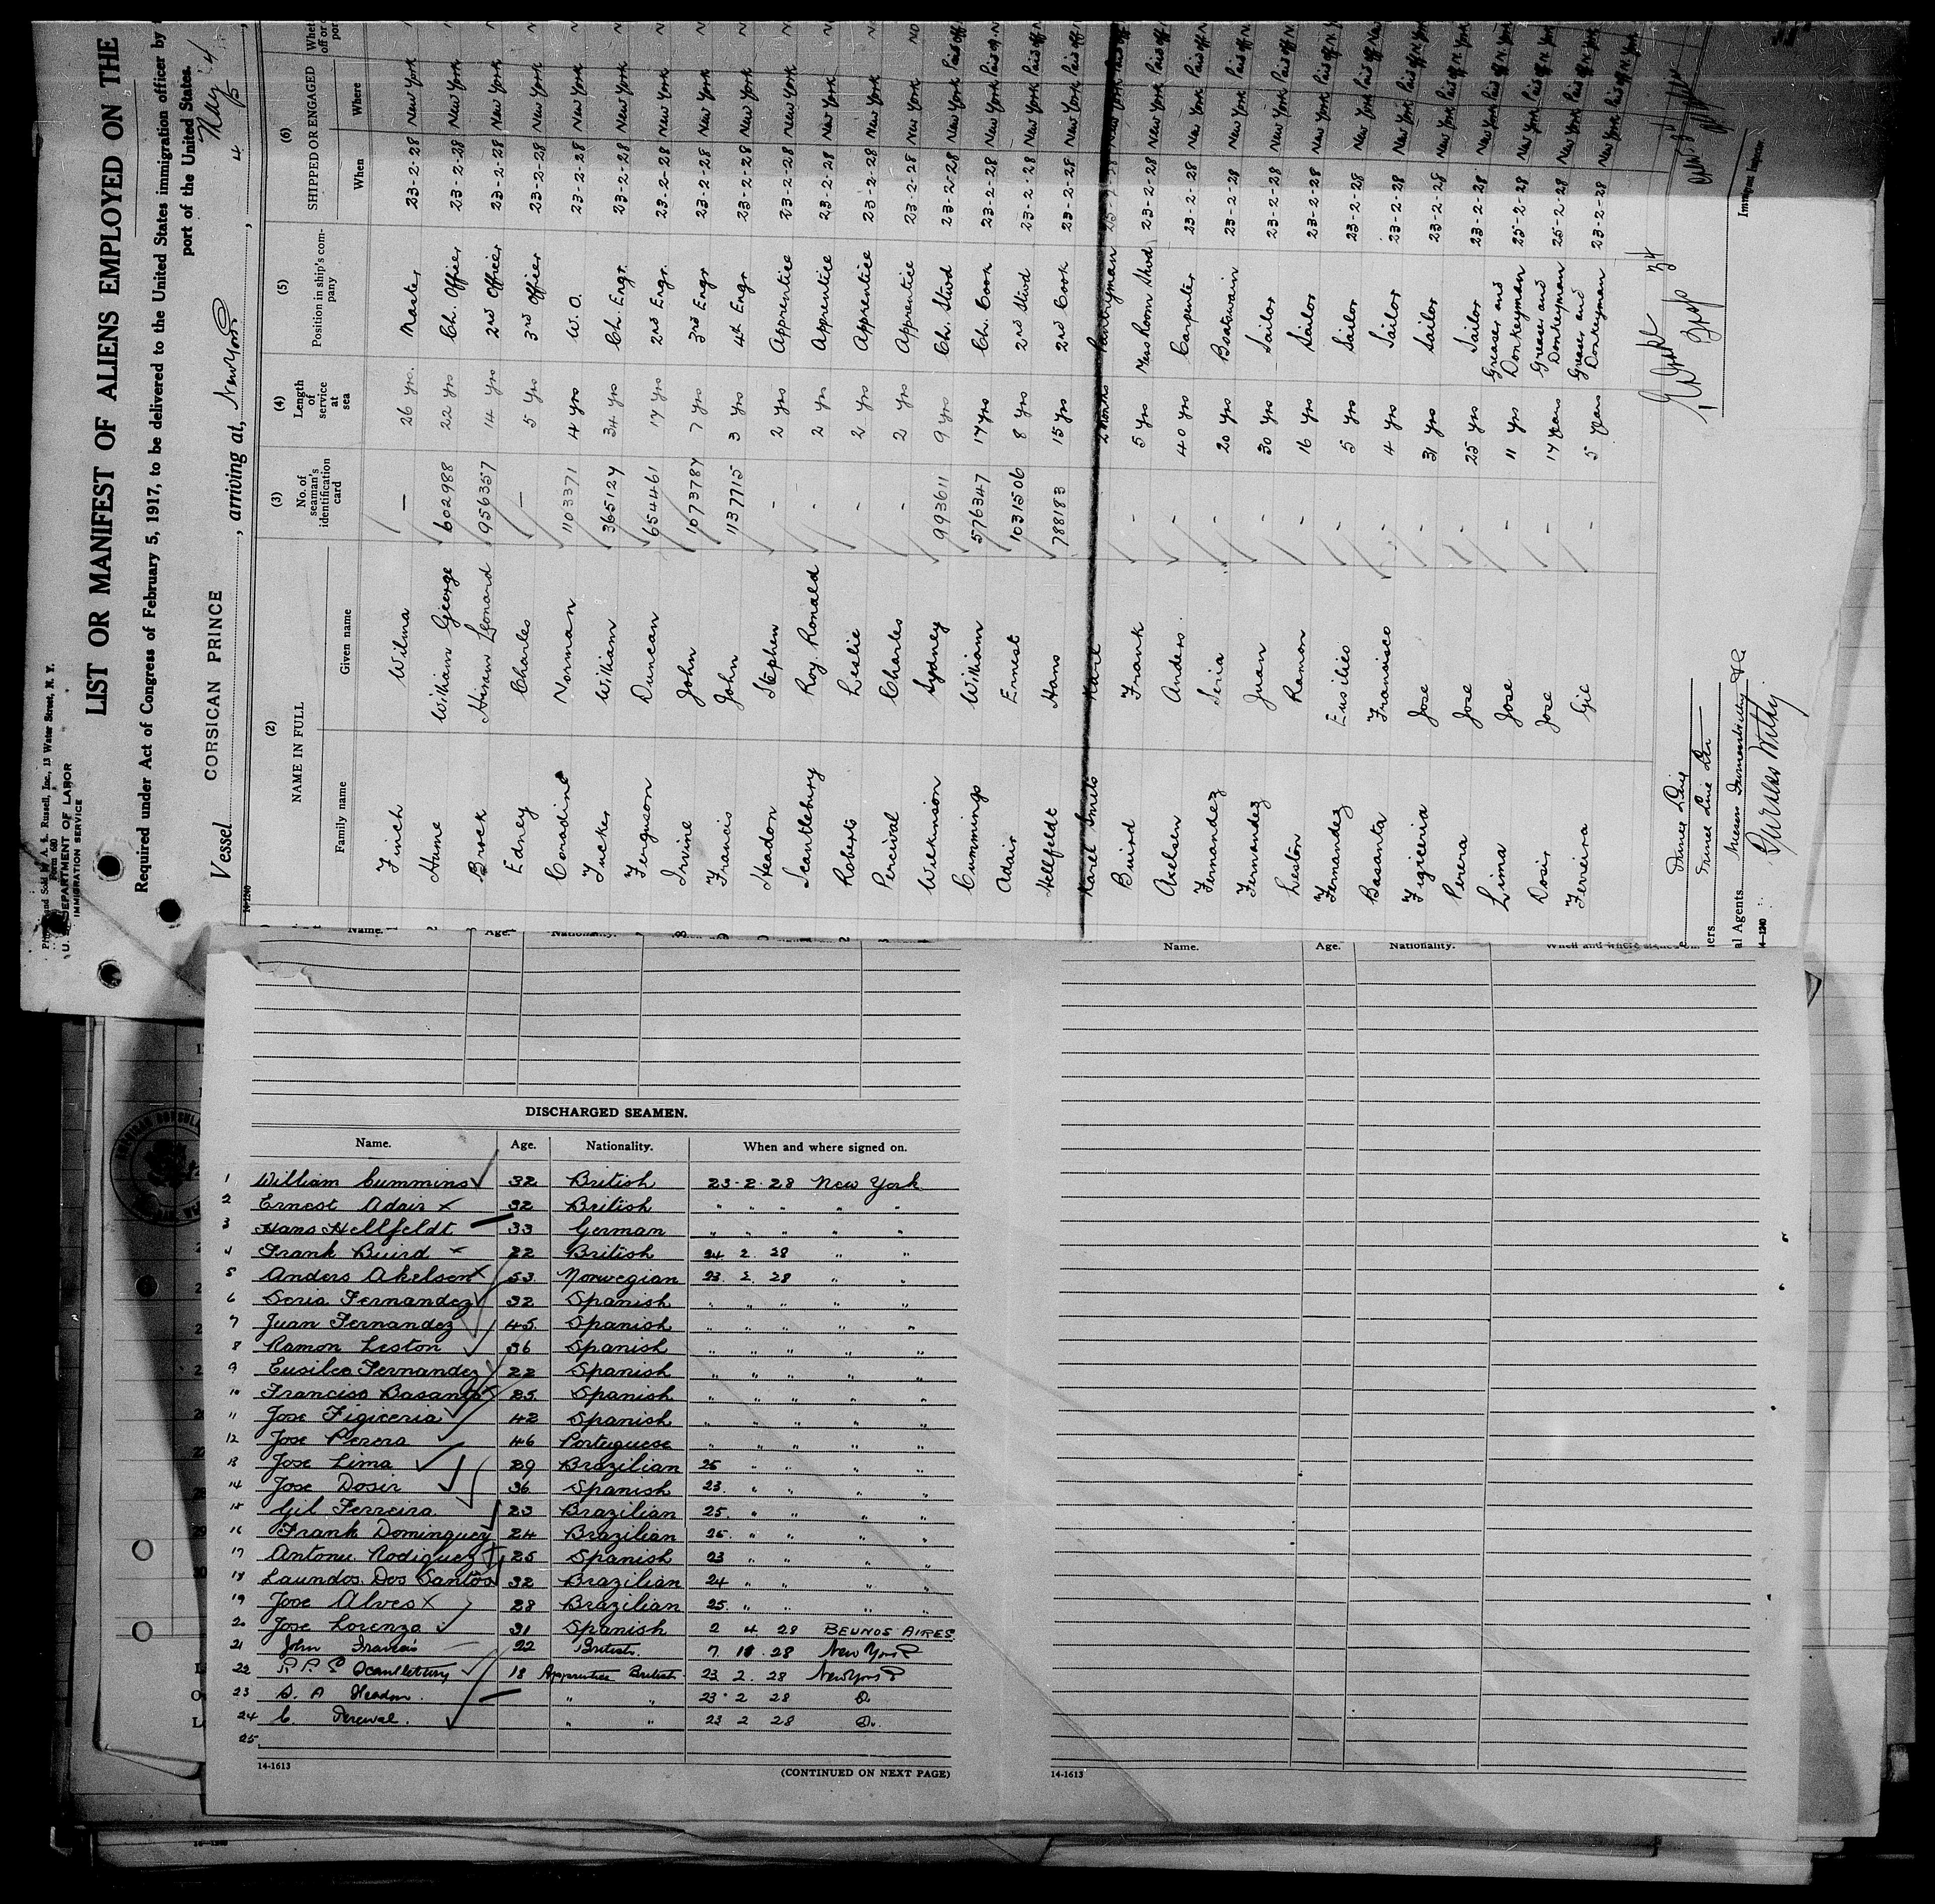 Printed and Sold by A. S. Russell, Inc., 13 Water Street, N. Y.
Form 680
U. S. DEPARTMENT OF LABOR
IMMIGRATION SERVICE
LIST OR MANIFEST OF ALIENS EMPLOYED ON THE
Required under Act of Congress of February 5, 1917, to be delivered to the United States immigration officer by
port of the United States.
Vessel CORSICAN PRINCE, arriving at, New York,
(2) (3) (4) (5) (6)
NAME IN FULL No. of seaman's identification card Length of service at sea Position in ship's company SHIPPED OR ENGAGED
Family name Given name When Where
Finch Wilma — 26 yrs. Master 23-2-28 New York
Hume William George 602988 22 yrs Ch. Officer 23-2-28 New York
Brock Hiram Leonard 956357 14 yrs 2nd Officer 23-2-28 New York
Edney Charles — 5 yrs 3rd Officer 23-2-28 New York
Coradine Norman 1103371 4 yrs W. O. 23-2-28 New York
Tucker William 365127 34 yrs Ch. Engr. 23-2-28 New York
Ferguson Duncan 654461 17 yrs 2nd Engr. 23-2-28 New York
Irvine John 1073787 7 yrs 3rd Engr 23-2-28 New York
Francis John 1137715 3 yrs 4th Engr 23-2-28 New York
Headon Stephen - 2 yrs Apprentice 23-2-28 New York
Scantlebury Roy Ronald - 2 yrs Apprentice 23-2-28 New York
Roberts Leslie - 2 yrs Apprentice 23-2-28 New York
Percival Charles - 2 yrs Apprentice 23-2-28 New York NO
Wilkinson Sydney 993611 9 yrs Ch. Stwd 23-2-28 New York Paid off
Cummings William 576347 17 yrs Ch. Cook 23-2-28 New York Paid off N
Adair Ernest 1031506 8 yrs 2nd Stwd 23-2-28 New York Paid off
Hellfeldt Hans 788183 15 yrs 2nd Cook 23-2-28 New York Paid off
Karel Smits Karel 2 months Pantryman 23-2-28 New York Paid off
Buird Frank - 5 yrs Mess Room Stwd 23-2-28 New York Paid off
Axelsen Anders - 40 yrs Carpenter 23-2-28 New York Paid off N
Fernandez Seria - 20 yrs Boatswain 23-2-28 New York Paid off N
Fernandez Juan - 30 yrs Sailor 23-2-28 New York Paid off N
Leston Ramon - 16 yrs Sailor 23-2-28 New York Paid off N
Fernandez Eusilies - 5 yrs Sailor 23-2-28 New York Paid off N
Basanta Francisco - 4 yrs Sailor 23-2-28 New York Paid off New
Figiceria Jose - 31 yrs Sailor 23-2-28 New York Paid off N. York
Perera Jose - 25 yrs Sailor 23-2-28 New York Paid off N. York
Lima Jose - 11 yrs Greaser and Donkeyman 25-2-28 New York Paid off N. York
Dosir Jose - 17 years Greaser and Donkeyman 25-2-28 New York Paid off N. York
Ferreira Gil - 5 years Greaser and Donkeyman 23-2-28 New York Paid off N. York
Immigrant Inspector.
al Agents
14—1240
Name. Age. Nationality.
Name. Age. Nationality. When and where signed
DISCHARGED SEAMEN.
Name. Age. Nationality. When and where signed on.
1 William Cummins 32 British 23-2-28 New York
2 Ernest Adair 32 British " " " " "
3 Hans Hellfeldt 33 German " " " " "
4 Frank Buird 22 British 24 2 28 " "
5 Anders Akelsen 53 Norwegian 23. 2. 28 " "
6 Seria Fernandez 32 Spanish " " " " "
7 Juan Fernandez 45 Spanish " " " " "
8 Ramon Leston 36 Spanish " " " " "
9 Eusilea Fernandez 22 Spanish " " " " "
10 Franciso Basanta 25 Spanish " " " " "
11 Jose Figiceria 42 Spanish " " " " "
12 Jose Perera 46 Portuguese " " " " "
13 Jose Lima 29 Brazilian 25 " " " "
14 Jose Dosir 36 Spanish 23. " " " "
15 Gil Ferreira 23 Brazilian 25. " " " "
16 Frank Dominguez 24 Brazilian 25. " " " "
17 Antonu Rodiguez 25 Spanish 23 " " " "
18 Laundos Dos Santos 32 Brazilian 24 " " " "
19 Jose Alves 28 Brazilian 25. " " " "
20 Jose Lorenzo 31 Spanish 2 4 28 BEUNOS AIRES.
21 John Francis 22 British. 7. 10. 28 New York
22 Scantlebury 18 Apprentice British 23 2. 28 New York
23 S. A Headon. " " 23 2 28 Do.
24 C. Percival. " " 23 2 28 Do.
25.
14-1613
(CONTINUED ON NEXT PAGE)
14-1613